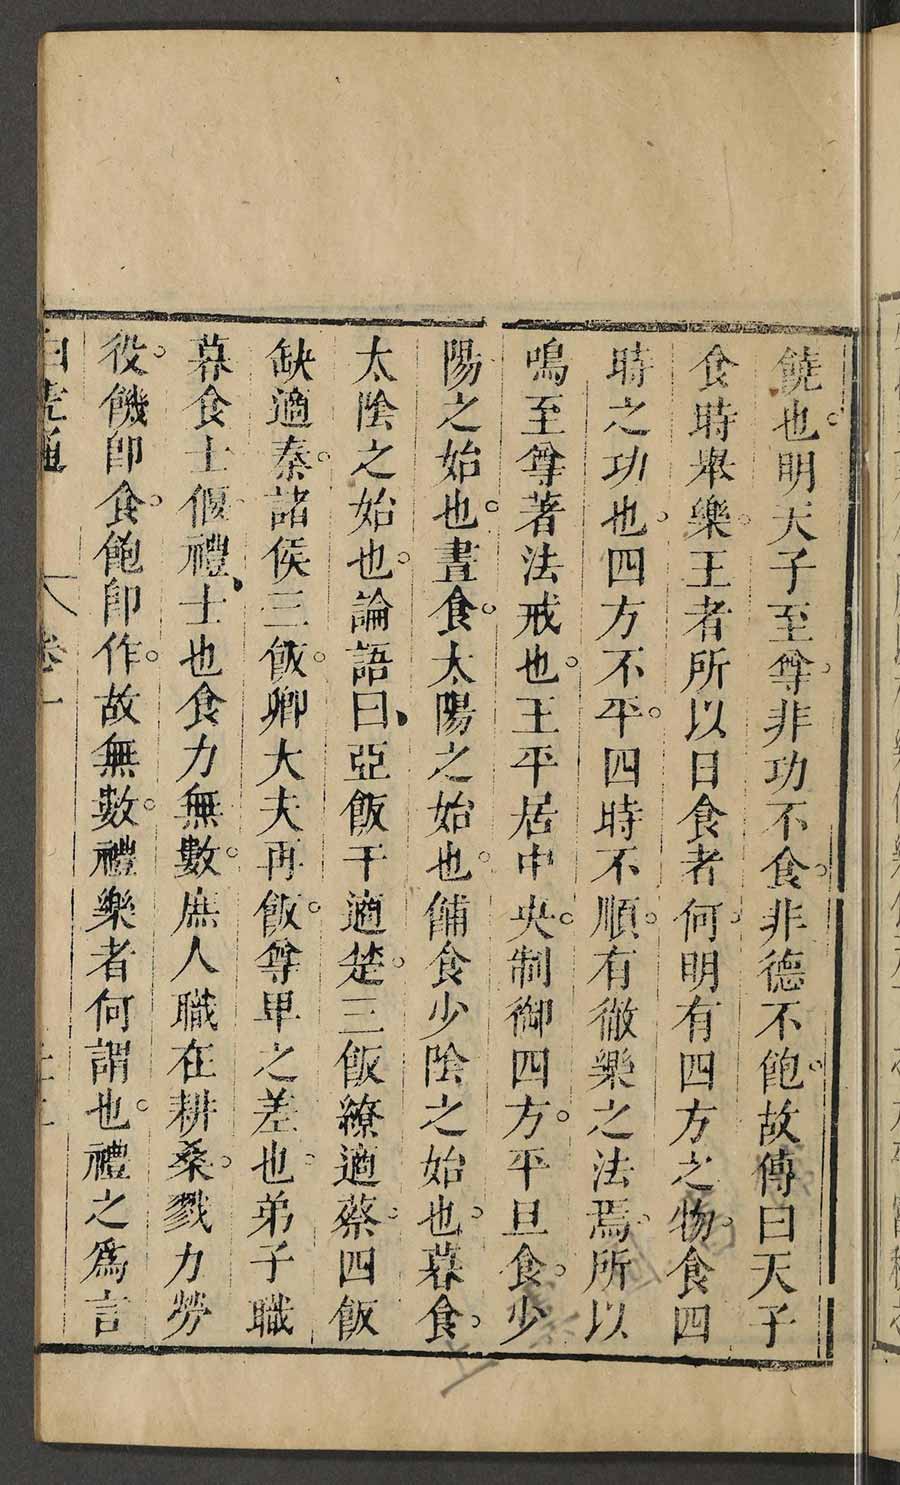 饒也。明天子至尊。非功不食。非德不飽。故傳曰天子
食時舉樂。王者所以日食者何。明有四方之物。食四
時之功也。四方不平。四時不順。有徹樂之法焉。所以
鳴至尊著法戒也。王平居中央。制御四方。平旦食。少
陽之始也。晝食。太陽之始也。餔食少陰之始也。暮食。
太陰之始也。論語曰、亞飯干適楚。三飯繚適蔡。四飯
缺適秦。諸侯三飯。卿大夫再飯。尊卑之差也。弟子職
暮食士偃禮、士也食力無數。庶人職在耕桑。戮力勞
役。饑卽食。飽卽作。故無數。禮樂者何謂也。禮之爲言
白虎通 卷一